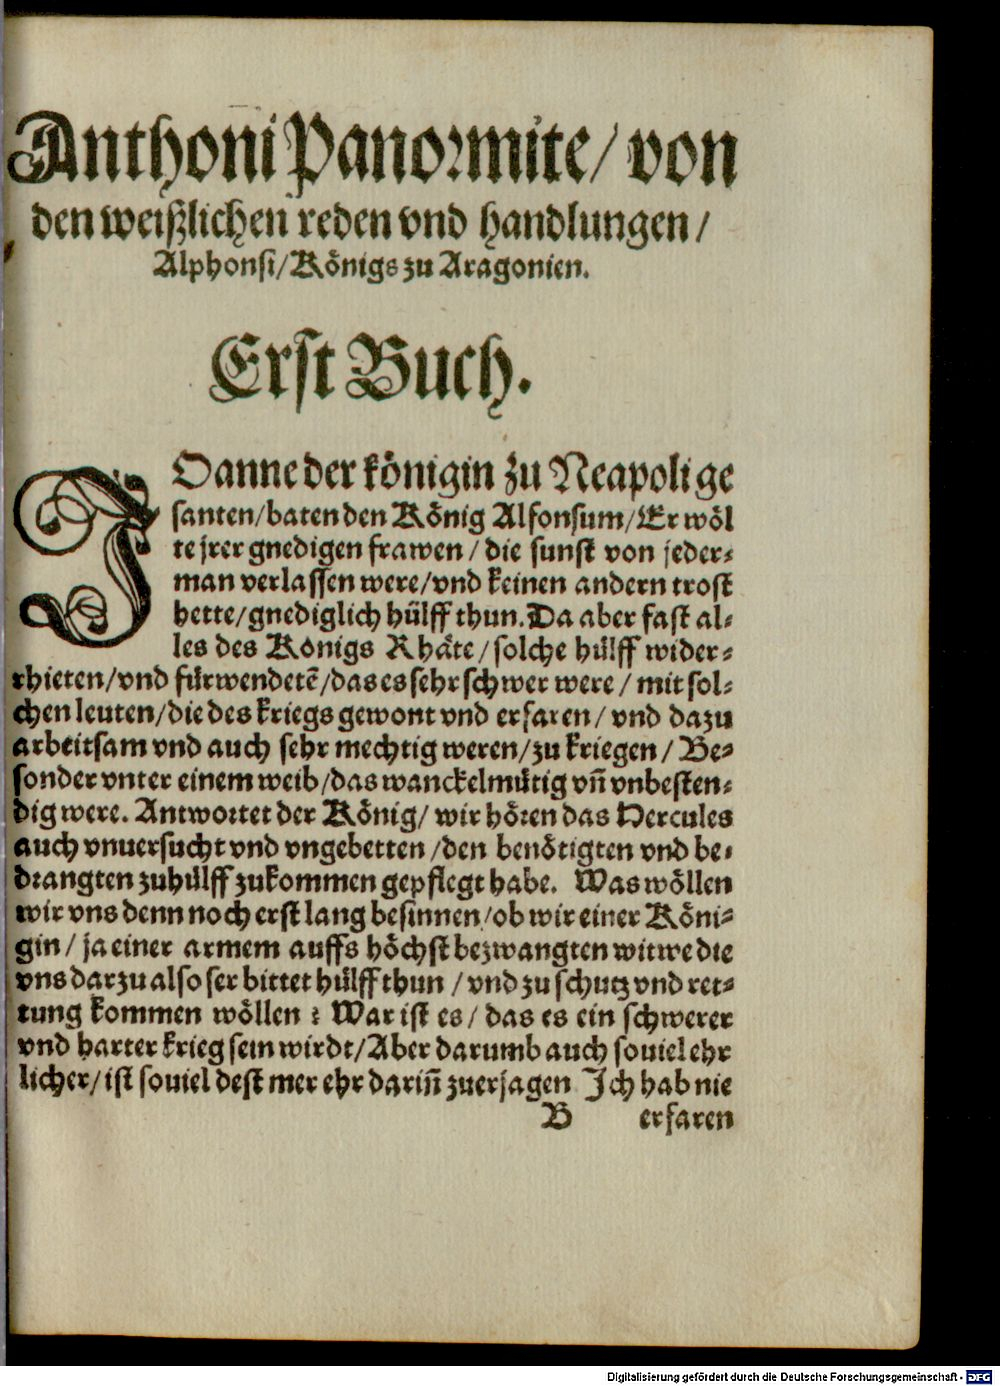 Anthoni Panormite/ von
den weißlichen reden vnd handlungen/
Alphonsi/Königs zu Aragonien.
Erst Buch.
JOanne der königin zu Neapoli ge
santen/baten den König Alfonsum/Er wöl
te jrer gnedigen frawen/ die sunst von jeder-
man verlassen were/vnd keinen andern trost
hette/gnediglich hülff thun. Da aber fast al-
les des Königs Rhäte/solche hülff wider-
rhieten/vnd fürwendetẽ/das es sehr schwer were/ mit sol-
chen leuten/die des kriegs gewont vnd erfaren/ vnd dazu
arbeitsam vnd auch sehr mechtig weren/zu kriegen/ Be-
sonder vnter einem weib/das wanckelmütig vñ vnbesten-
dig were. Antwortet der König/ wir hören das Hercules
auch vnuersucht vnd vngebetten/den benötigten vnd be-
drangten zuhülff zukommen gepflegt habe. Was wöllen
wir vns denn noch erst lang besinnen/ob wir einer Köni-
gin/ ja einer armem auffs höchst bezwangten witwe die
vns darzu also ser bittet hülff thun/vnd zu schutz vnd ret-
tung kommen wöllen? War ist es/ das es ein schwerer
vnd harter krieg sein wirdt/Aber darumb auch souiel ehr
licher/ist souiel dest mer ehr dariñ zuerjagen Jch hab nie
B erfaren
Digitalisierung gefördert durch die Deutsche Forschungsgemeinschaft - DFG